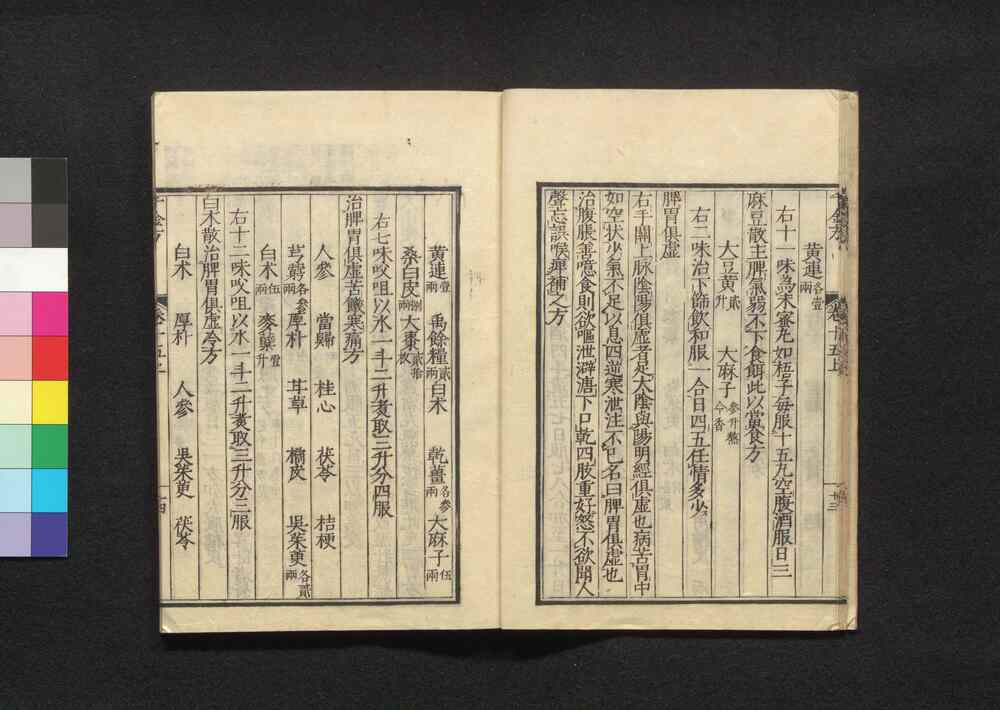 黄連各壹兩
右十一味為末蜜丸如梧子每服十五丸空腹酒服日三
麻豆散主脾氣弱不下食餌此以當食方
大豆黄貳升 大麻子參升熬令香
右二味治下篩飲和服一合日四五任情多少
脾胃俱虛
右手關上脉陰陽俱虛者足太陰與陽明經俱虛也病苦胃中
如空状少氣不足以息四逆寒泄注不已名曰脾胃俱虛也
治腹脹善噫食則欲嘔泄澼溏下口乾四肢重好怒不欲聞人
聲忘誤喉痹補之方
黄連壹兩 禹餘糧貳兩 白术 乾薑各參兩 大麻子伍兩
桑白皮捌兩 大棗貳拾枚
右七味㕮咀以水一斗二升煮取三升分四服
治脾胃俱虛苦饑寒痛方
人參 當歸 桂心 茯苓 桔梗
芎藭各參兩 厚朴 甘草 橘皮 吳茱萸各貳兩
白术伍兩 麥櫱壹升
右十二味㕮咀以水一斗二升煮取三升分三服
白术散治脾胃俱虛冷方
白术 厚朴 人參 吳茱萸 茯苓